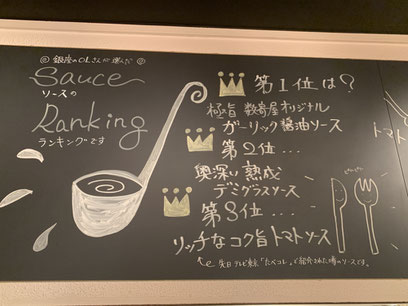 ◎ 銀座のOLさんが選んだ ◎
Sauce
ソースの
Ranking
ランキングです
第1位は?
極旨 数寄屋オリジナル
ガーリック醤油ソース
第2位...
奥深い熟成
デミグラスソース
第3位...
リッチなコク旨トマトソース
先日テレビ東京「たべコレ」で紹介された噂のソースです。
トマト